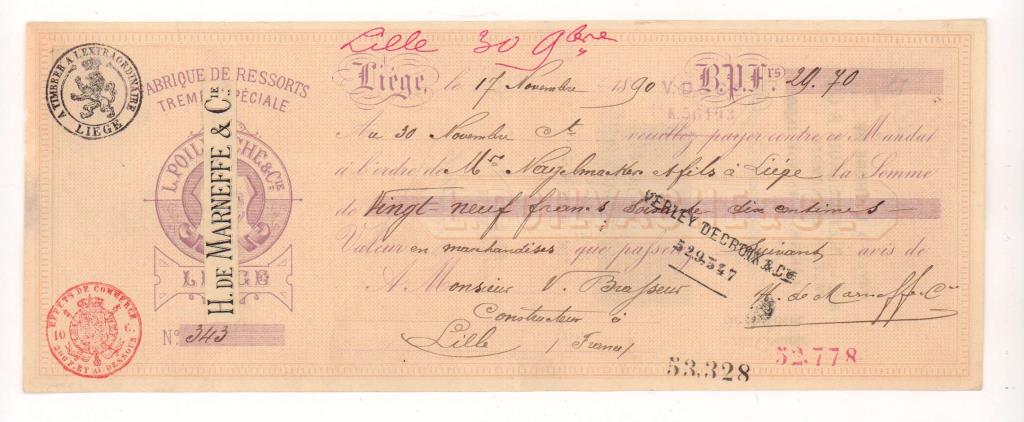 Lille 30 9bre
A TIMBRER A L'EXTRAORDINAIRE
LIEGE
FABRIQUE DE RESSORTS
TREMPE SPÉCIALE
L. POIL CHE & CIE
LIÉGE
H. DE MARNEFFE & CIE
Nº 343
EFFETS DE COMMERCE
10 C.
200 F. ET AU DESSOUS
Liége, le 17 Novembre 1890 B.P.Frs 29.70
Au 30 Novembre ct veuillez payer contre ce Mandat
à l'ordre de Mrs Nagelmackers & fils à Liége la Somme
de Vingt neuf francs soixante dix centimes
Valeur en marchandises que passerez suivant avis de
A Monsieur V. Brasseur H. de Marneffe & Cie
Constructeur à
Lille (France)
VERLEY DECROIX & CIE
529.547
53.328
52.778